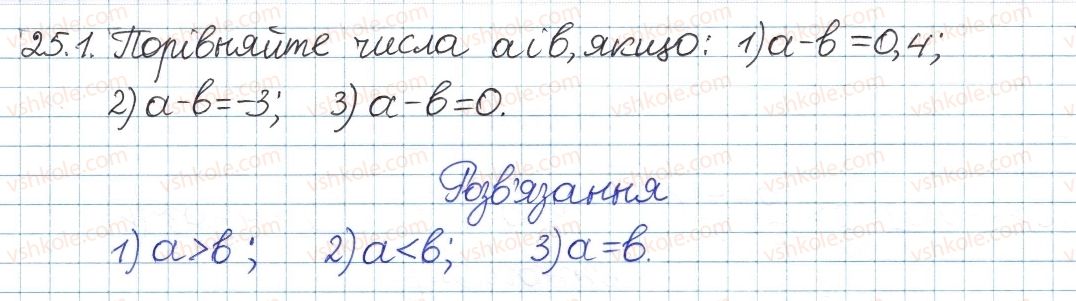 25.1. Порівняйте числа a і b, якщо: 1) a-b=0,4;
2) a-b=-3; 3) a-b=0.
Розв'язання
1) a>b; 2) a<b; 3) a=b.